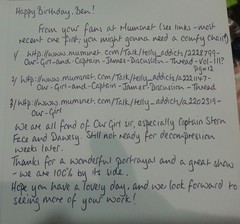 Happy Birthday, Ben!
From your fans at Mumsnet (see links - most
recent one first; you might gonna need a comfy chair!)
1/ http://www.mumsnet.com/Talk/telly_addicts/
Our-Girl-and-Captain-James-Discussion-Thread-Vol-III?
pg=12
2/ http://www.mumsnet.com/Talk/telly_addicts/
Our-Girl-and-Captain-James-Discussion-Thread
3/ http://www.mumsnet.com/Talk/telly_addicts/
Our-Girl
We are all fond of Our Girl sir, especially Captain Stern
Face and Dawesy. Still not ready for decompression
weeks later.
Thanks for a wonderful portrayal and a great show
- we are 100% by its side.
Hope you have a lovely day, and we look forward to
seeing more of your work!